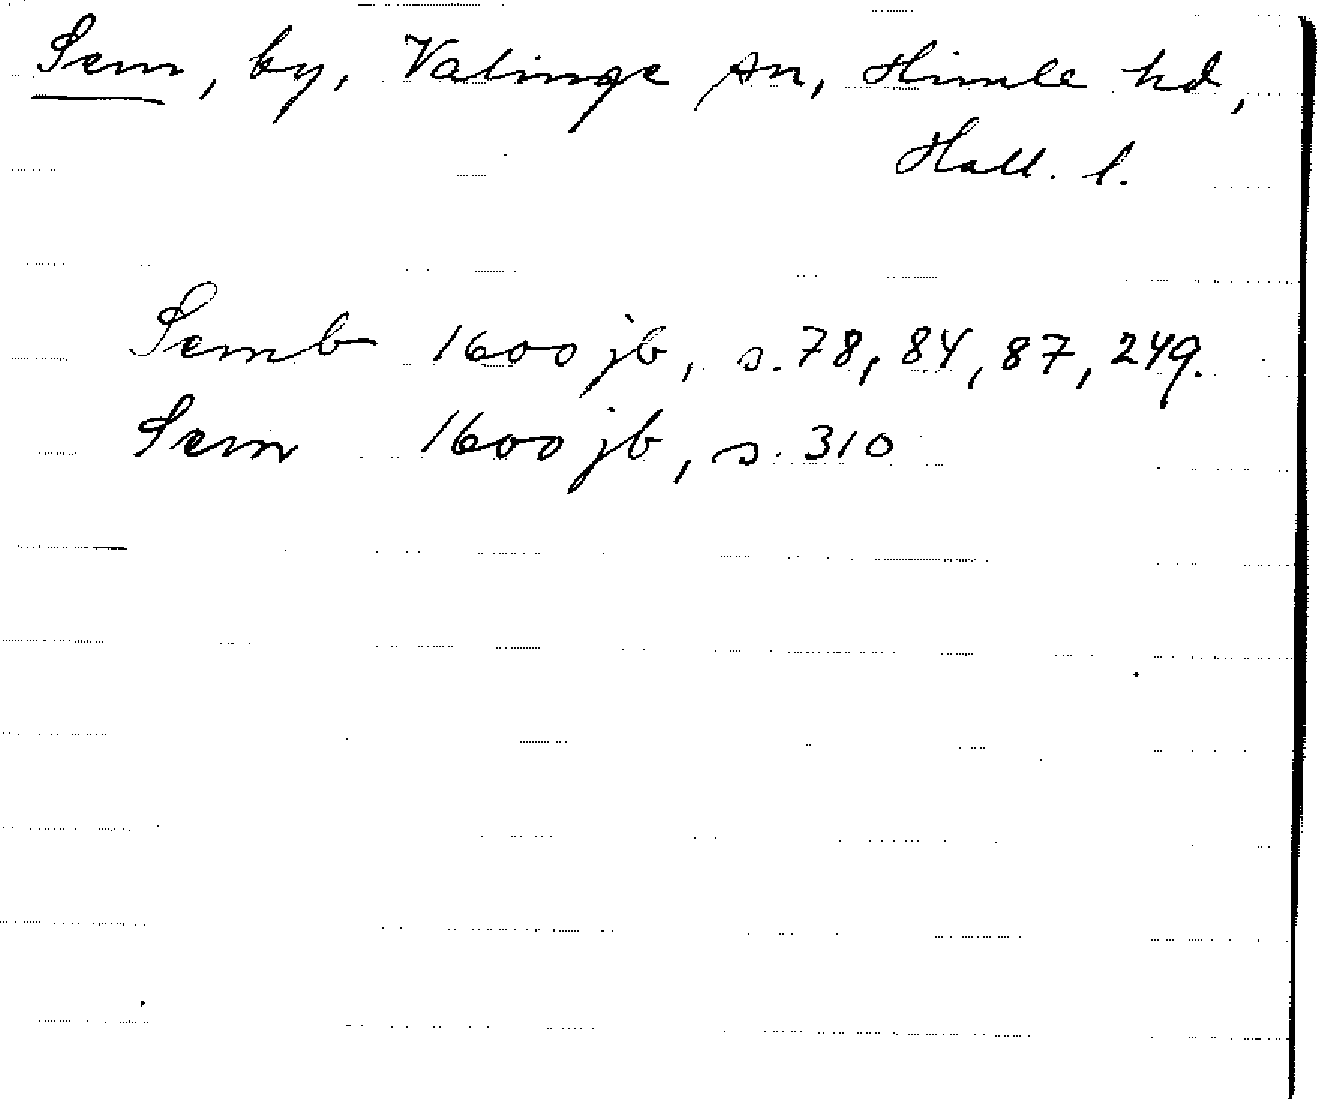 Sem, by, Valinge sn, Himle hd,
Hall. l.
Semb 1600 jb, s. 78, 84, 87, 249.
Sem 1600 jb, s. 310